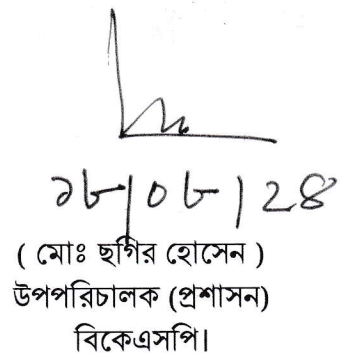 ১৮|০৮|২৪
( মোঃ ছগির হোসেন )
উপপরিচালক (প্রশাসন)
বিকেএসপি।